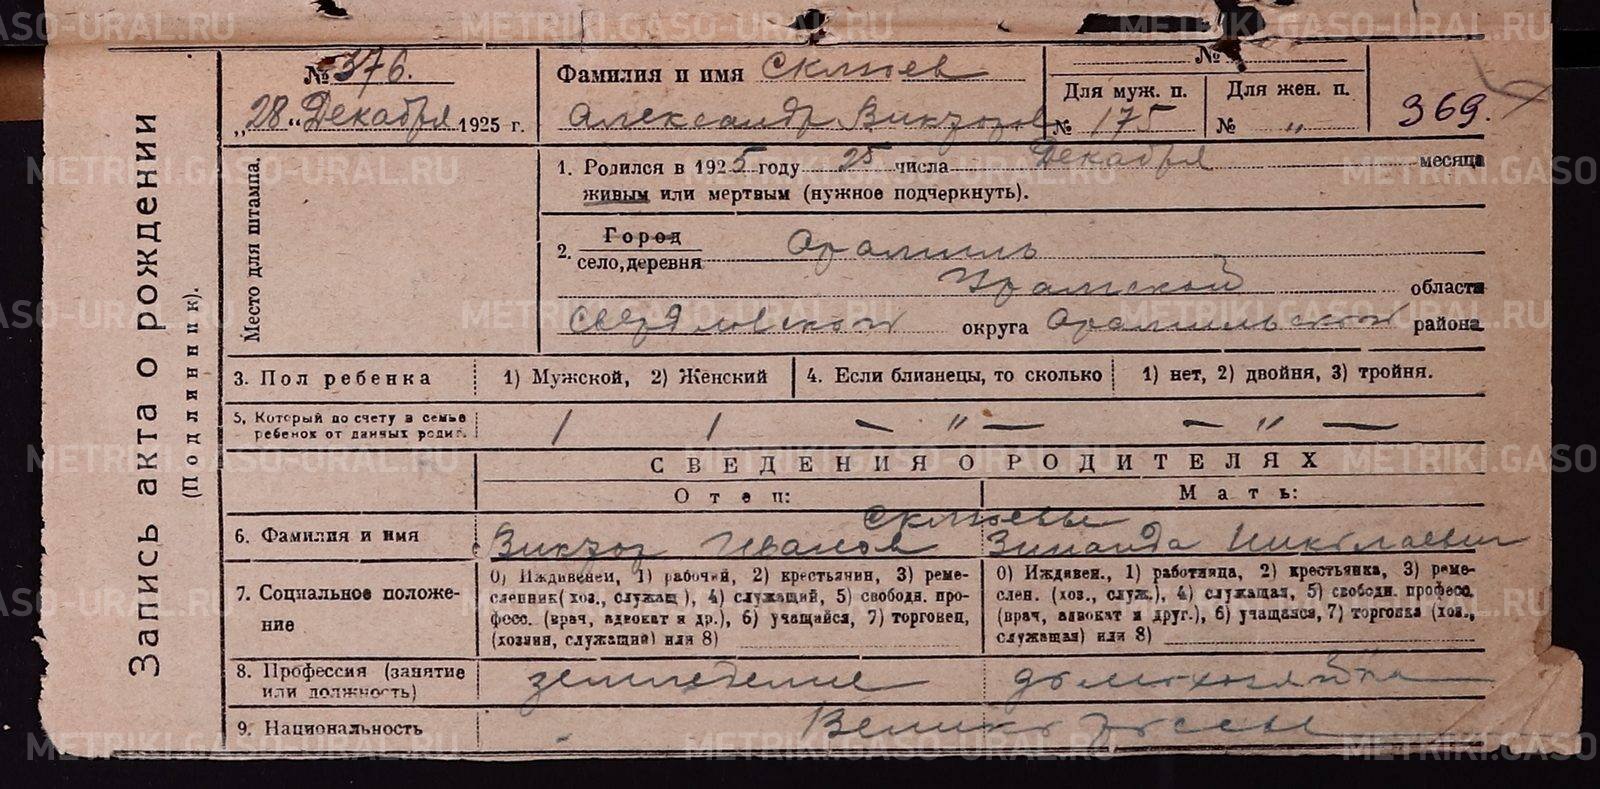 Запись акта о рождении
(Подлинник).
№ 376.
„28“ Декабря 1925 г.
Место для штампа.
Фамилия и имя Склюев
Александр Викторов
№
Для муж. п. Для жен. п.
№ 175 № „
369.
1. Родился в 1925 году 25 числа Декабря месяца
живым или мертвым (нужное подчеркнуть).
2. Город
село, деревня Арамиль
Уральской области
Свердловского округа Арамильского района
3. Пол ребенка 1) Мужской, 2) Женский 4. Если близнецы, то сколько 1) нет, 2) двойня, 3) тройня.
5. Который по счету в семье
ребенок от данных родит. 1 1 — „ — — „ —
СВЕДЕНИЯ О РОДИТЕЛЯХ
Отец: Мать:
Склюевы
6. Фамилия и имя Виктор Иванов Зинаида Николаевич
7. Социальное положе-
ние
0) Иждивенец, 1) рабочий, 2) крестьянин, 3) реме-
сленник (хоз., служащ), 4) служащий, 5) свободн. про-
фесс. (врач, адвокат и др.), 6) учащийся, 7) торговец,
(хозяин, служащий) или 8)
0) Иждивен., 1) работница, 2) крестьянка, 3) реме-
слен. (хоз., служ.), 4) служащая, 5) свободн. професс.
(врач, адвокат и друг.), 6) учащаяся, 7) торговка (хоз.,
служащая) или 8)
8. Профессия (занятие
или должность) земледелие домохозяйка
9. Национальность Великороссы
METRIKI.GASO-URAL.RU